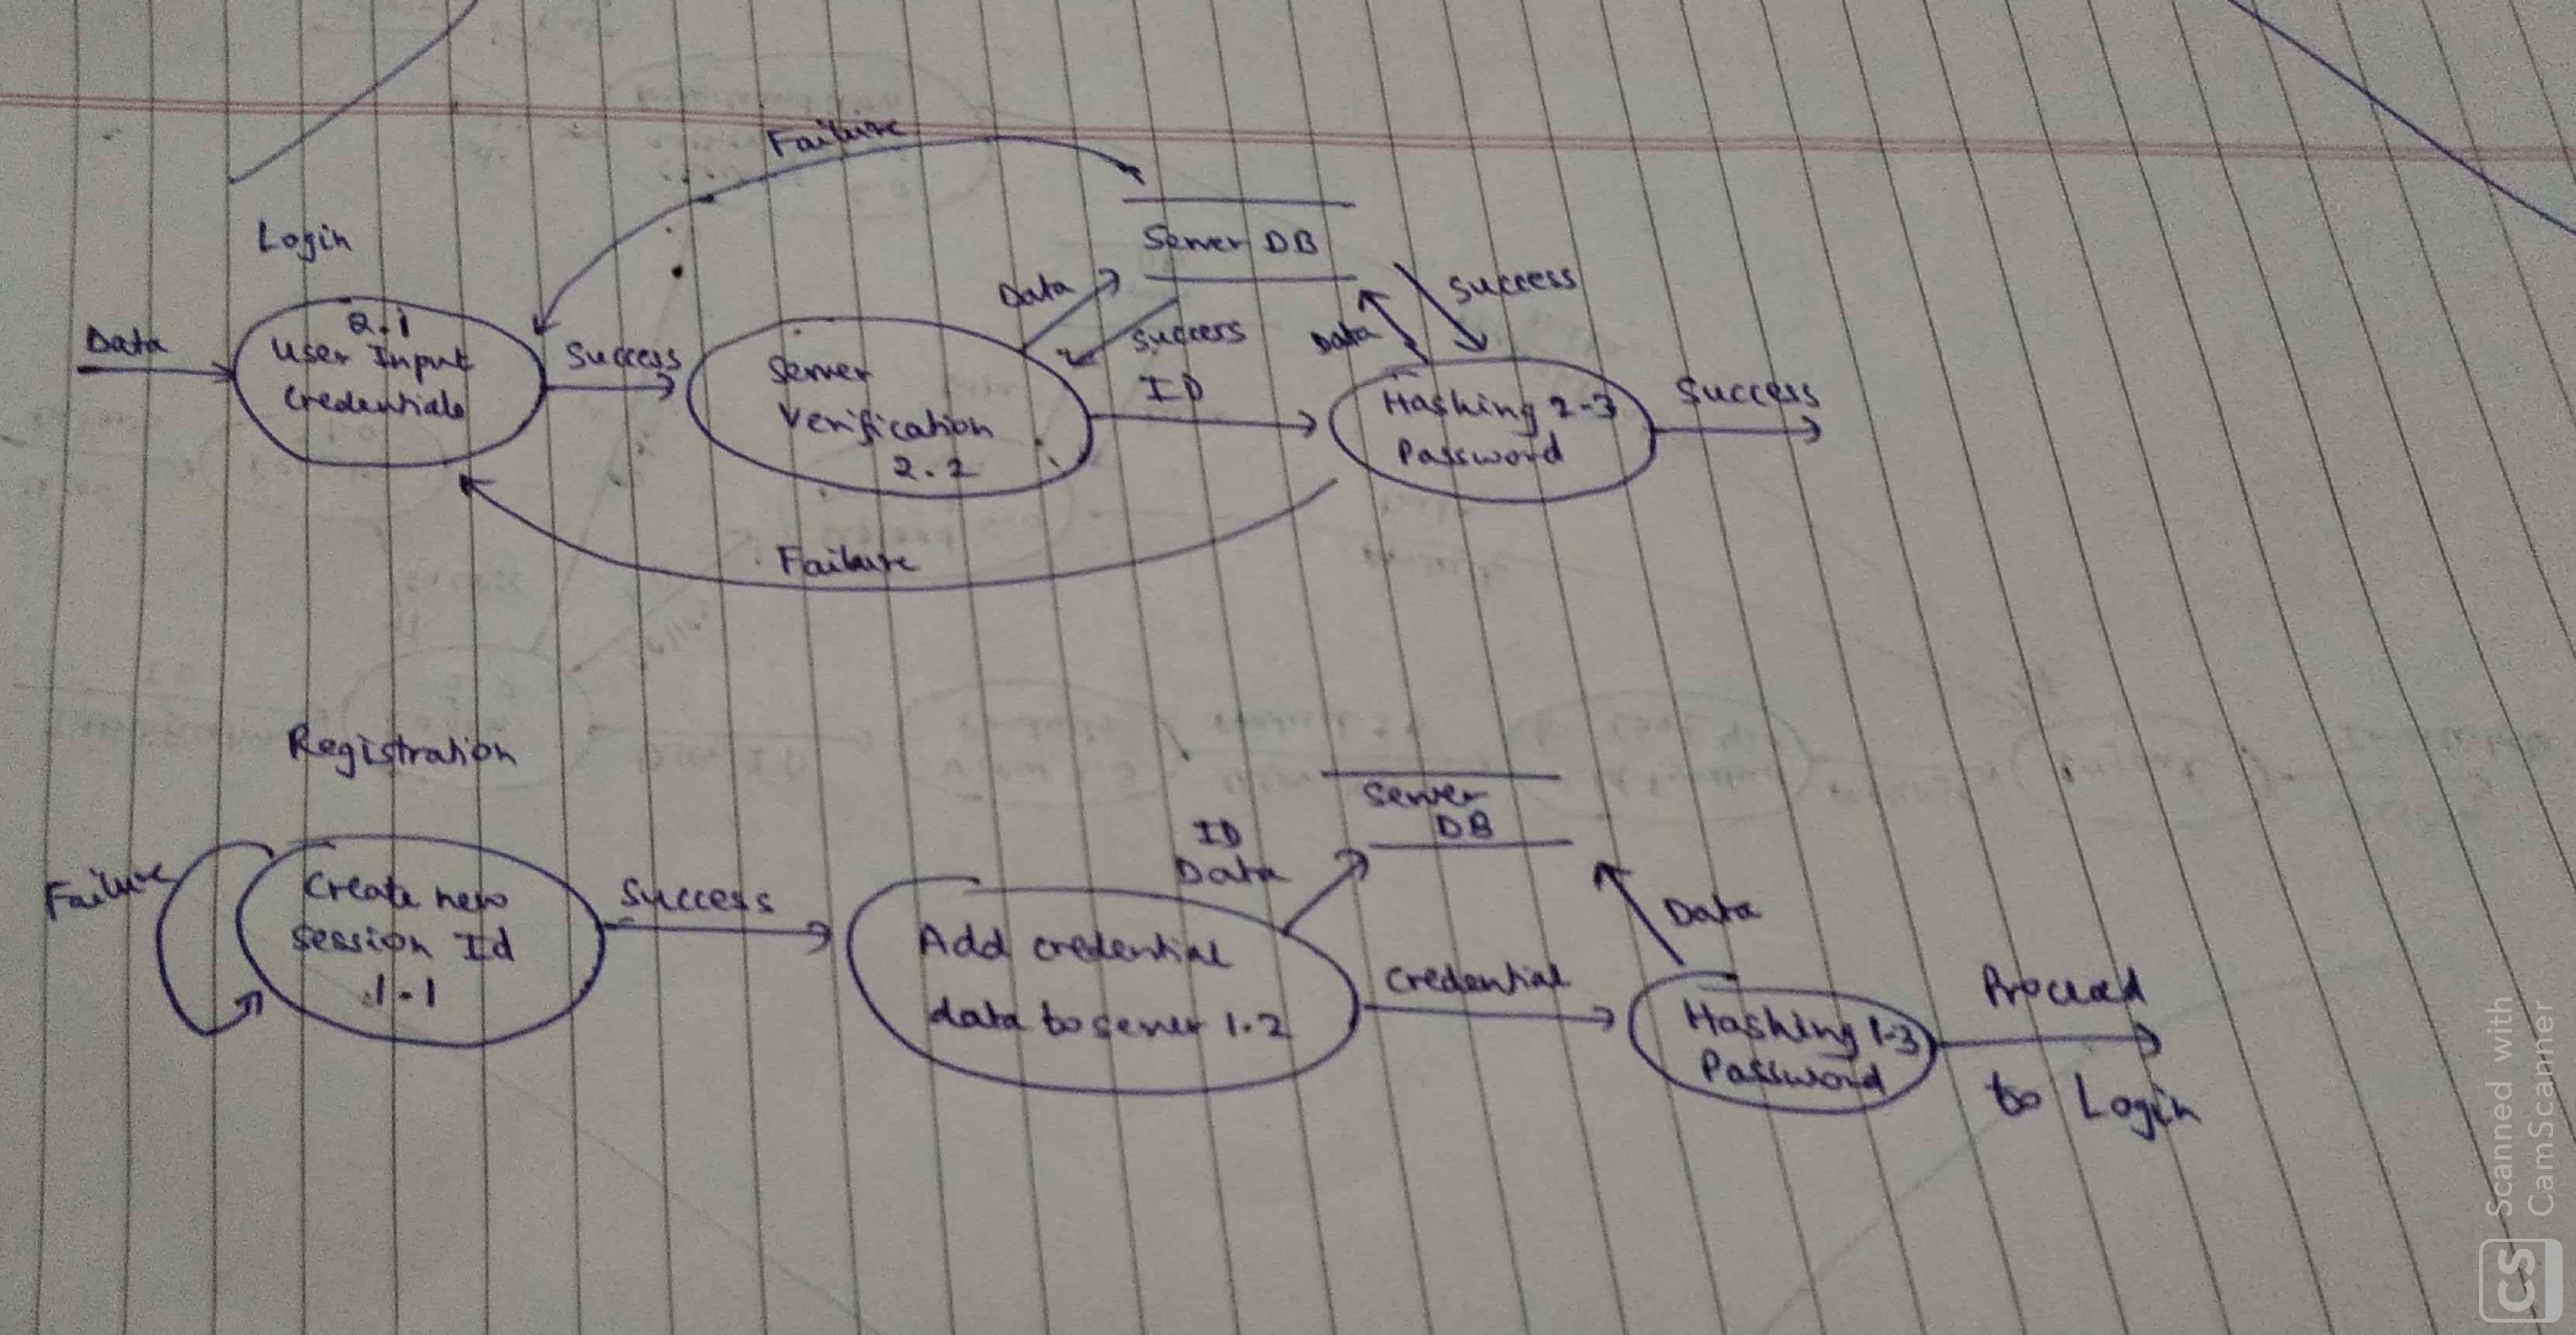 Failure
Login
Server DB
Data
Success
Data
2.1
User Input
Credentials
Success
Server
Verification
2.2
Success
ID
Data
Hashing 2-3
Password
Success
Failure
Registration
Server
DB
ID
Data
Failure
Create new
session Id
1.1
Success
Add credential
data to server 1.2
Data
Credential
Hashing 1-3
Password
Proceed
to Login
Scanned with
CamScanner
CS